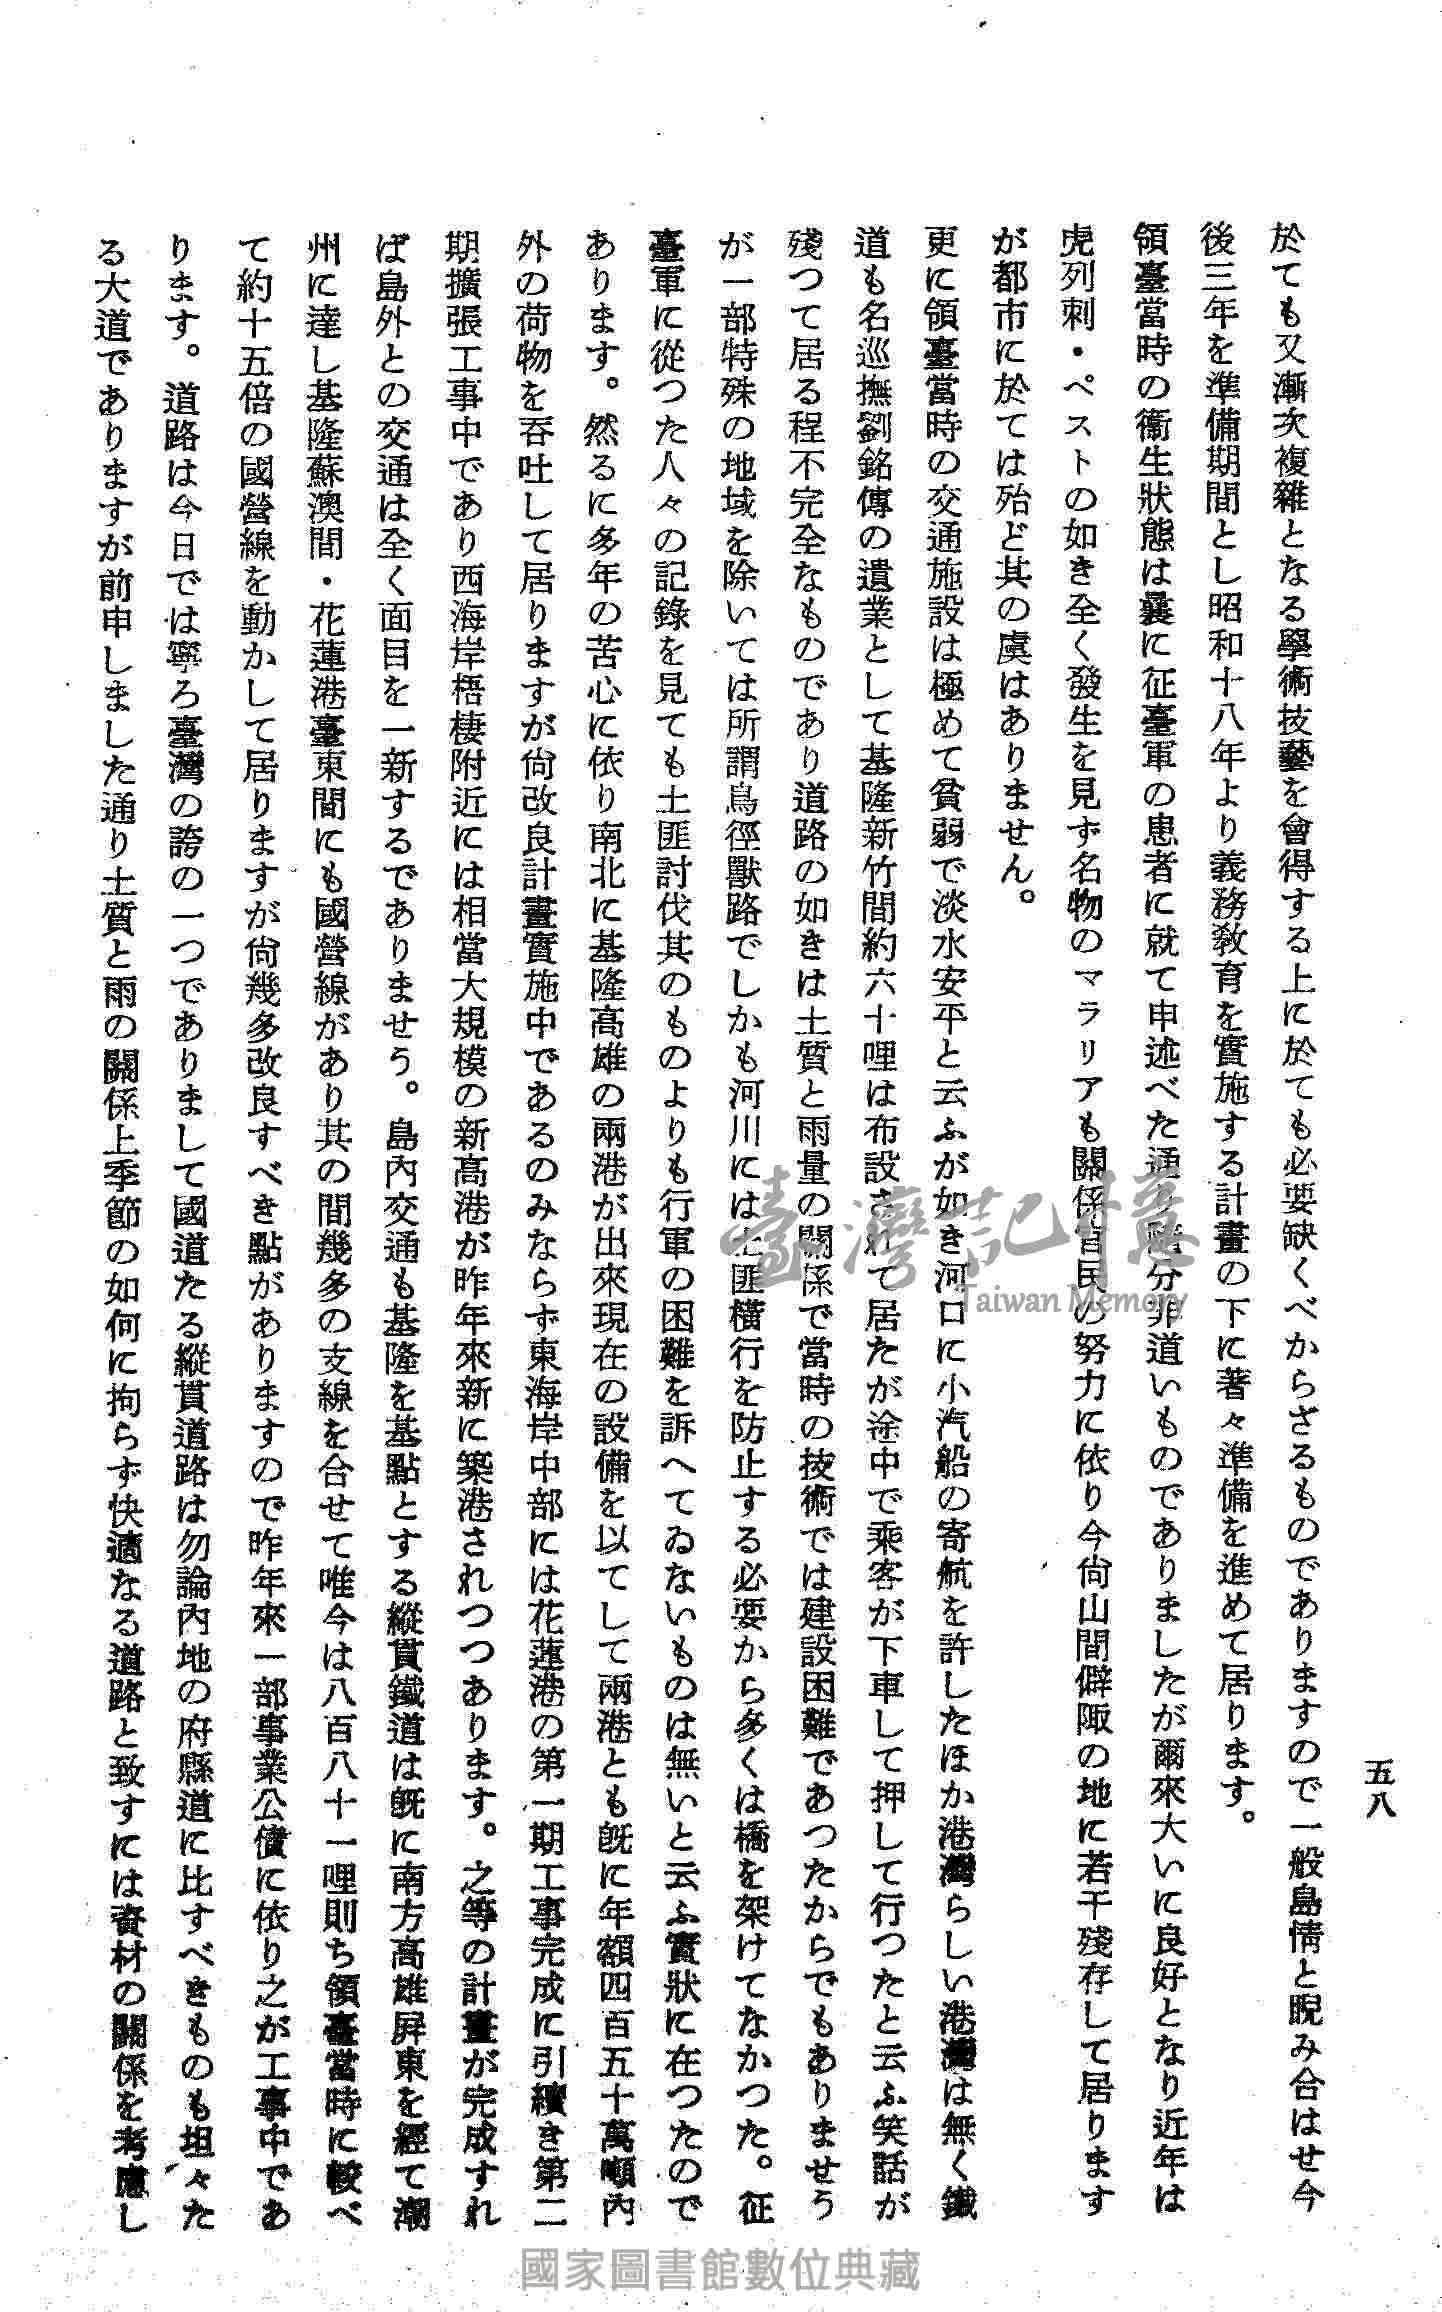 五八
於ても又漸次複雜となる學術技藝を會得する上に於ても必要缺くべからざるものでありますので一般島情と睨み合はせ今
後三年を準備期間とし昭和十八年より義務敎育を實施する計畫の下に著々準備を進めて居ります。
領臺當時の衞生狀態は曩に征臺軍の患者に就て申述べた通り隨分非道いものでありましたが爾來大いに良好となり近年は
虎列刺・ペストの如き全く發生を見ず名物のマラリアも關係官民の努力に依り今尙山間僻陬の地に若干殘存して居ります
が都市に於ては殆ど其の虞はありません。
更に領臺當時の交通施設は極めて貧弱で淡水安平と云ふが如き河口に小汽船の寄航を許したほか港灣らしい港灣は無く鐵
道も名巡撫劉銘傳の遺業として基隆新竹間約六十哩は布設されて居たが途中で乘客が下車して押して行つたと云ふ笑話が
殘つて居る程不完全なものであり道路の如きは土質と雨量の關係で當時の技術では建設困難であつたからでもありませう
が一部特殊の地域を除いては所謂鳥徑獸路でしかも河川には土匪橫行を防止する必要から多くは橋を架けてなかつた。征
臺軍に從つた人々の記錄を見ても土匪討伐其のものよりも行軍の困難を訴へてゐないものは無いと云ふ實狀に在つたので
あります。然るに多年の苦心に依り南北に基隆高雄の兩港が出來現在の設備を以てして兩港とも旣に年額四百五十萬噸內
外の荷物を呑吐して居りますが尙改良計畫實施中であるのみならず東海岸中部には花蓮港の第一期工事完成に引續き第二
期擴張工事中であり西海岸梧棲附近には相當大規模の新高港が昨年來新に築港されつつあります。之等の計畫が完成すれ
ば島外との交通は全く面目を一新するでありませう。島內交通も基隆を基點とする縱貫鐵道は旣に南方高雄屛東を經て潮
州に達し基隆蘇澳間・花蓮港臺東間にも國營線があり其の間幾多の支線を合せて唯今は八百八十一哩則ち領臺當時に較べ
て約十五倍の國營線を動かして居りますが尙幾多改良すべき點がありますので昨年來一部事業公債に依り之が工事中であ
ります。道路は今日では寧ろ臺灣の誇の一つでありまして國道たる縱貫道路は勿論內地の府縣道に比すべきものも坦々た
る大道でありますが前申しました通り土質と雨の關係上季節の如何に拘らず快適なる道路と致すには資材の關係を考慮し
臺灣記憶
Taiwan Memory
國家圖書館數位典藏